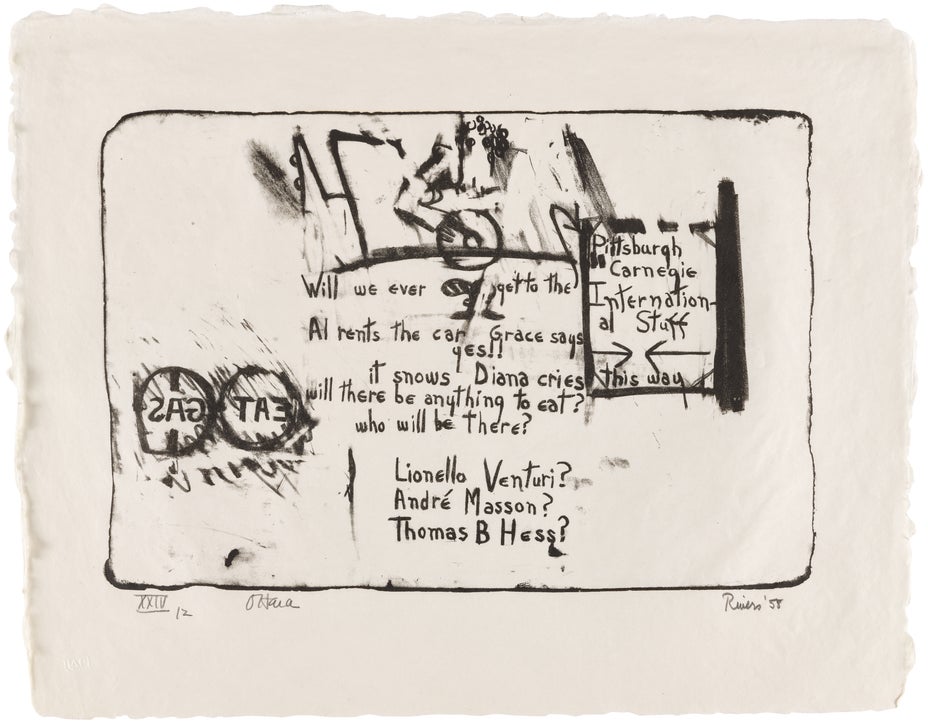 Will we ever get to the
Pittsburgh
Carnegie
Internation-
al Stuff
this way
Al rents the car Grace says
yes!!
it snows Diana cries
will there be anything to eat?
who will be there?
GAS EAT
Lionello Venturi?
André Masson?
Thomas B Hess?
XXIV
12 O'Hara Rivers '58